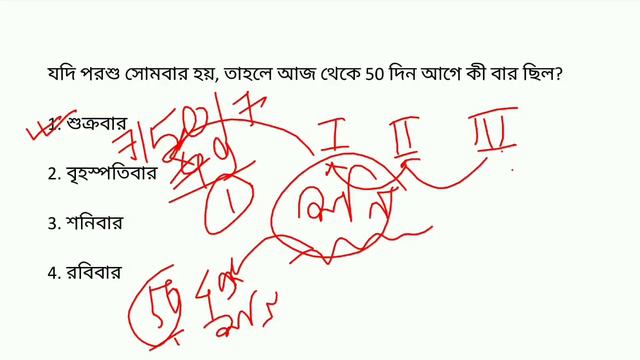 যদি পরশু সোমবার হয়, তাহলে আজ থেকে 50 দিন আগে কী বার ছিল?
1. শুক্রবার
2. বৃহস্পতিবার
3. শনিবার
4. রবিবার
7) 50 ( 7
49
1
I II III